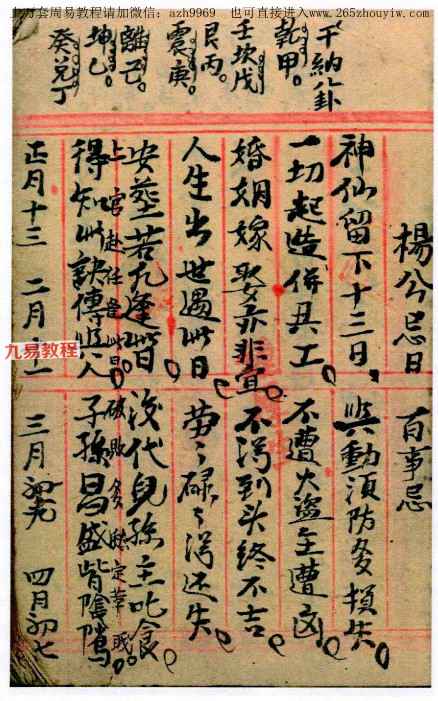 上万套周易教程请加微信：azh9969 也可直接进入www.265zhouyiw.com
九易教程
干納八卦
乾甲
壬坎戊
艮丙
震庚
離己
坤乙
癸兑丁
楊公忌日 百事忌
神仙留下十三日 興動須防多損失
一切起造併興工 不遭火盜主遭凶
婚姻嫁娶亦非宜 不得到头終不吉
人生出世遇此日 劳々碌々得还失
安塟若凢逢此日 後代兒孫主叱食
上官赴任 此日 破敗 定
得知此訣傳世人 子孫昌盛皆陰隲
正月十三 二月十一 三月初九 四月初七